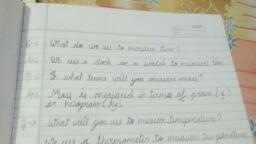 Q-1 What do we use to measure time?
Ans We use a clock or a watch to measure time.
Q-2 In what terms will you measure mass?
Ans Mass is measured in terms of gram (g.)
or kilogram (kg).
Q-3 What will you use to measure temperature?
We use a thermometer to measure temperature.